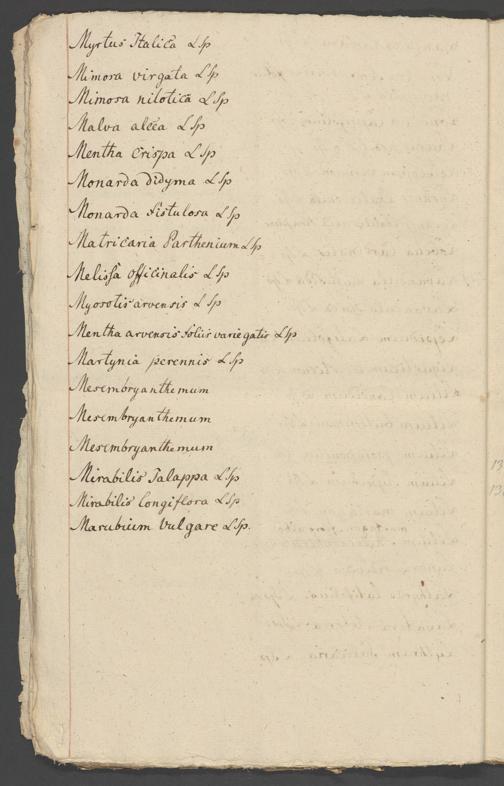 Myrtus Italica LSp
Mimosa virgata LSp
Mimosa nilotica LSp
Malva alcea LSp
Mentha Crispa LSp
Monarda didyma LSp
Monarda fistulosa LSp
Matricaria Parthenium LSp
Melissa officinalis LSp
Myosotis arvensis LSp
Mentha arvensis foliis variegatis LSp
Martynia perennis LSp
Mesembryanthemum
Mesembryanthemum
Mesembryanthemum
Mirabilis Jalappa LSp
Mirabilis longiflora LSp
Marubium Vulgare LSp.